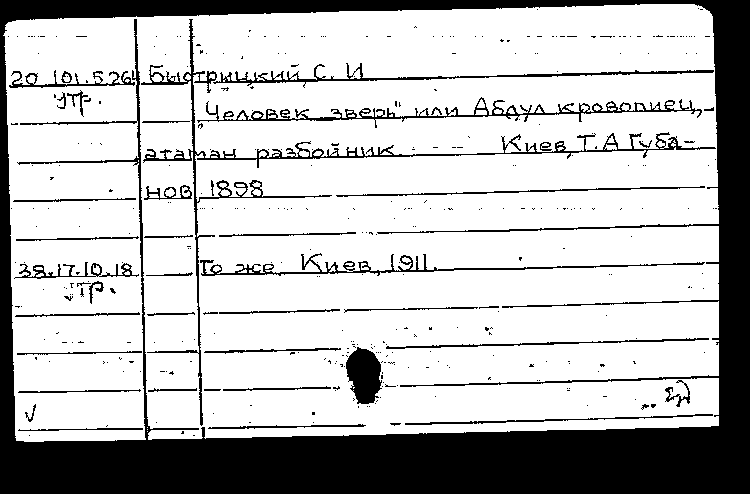 20.101.5.264 Быстрицкий, С. И
утр.
„Человек зверь", или Абдул кровопиец,
атаман разбойник. Киев, Т. А Губа-
нов, 1898
38.17.10.18 То же. Киев, 1911.
утр.